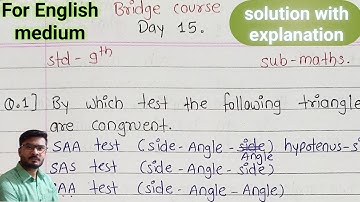 For English
medium
Bridge course
Day 15.
solution with
explanation
std - 9th
sub-maths.
Q.1] By which test the following triangle
are congruent.
SAA test (side-Angle-side) hypotenus-s
Angle
SAS test (side-Angle-side)
AA test (side-Angle-Angle)